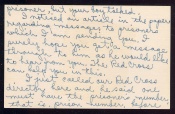 prisoner, but your boy talked.
I noticed an article in the paper
regarding messages to prisoners
which I am sending you. I
surely hope you get a message
through to him as he would like
to hear from you. The Red Cross
can help you in this.
I just called our Red Cross
directly here and he said one
must have the prisoners number
that is, prison number before